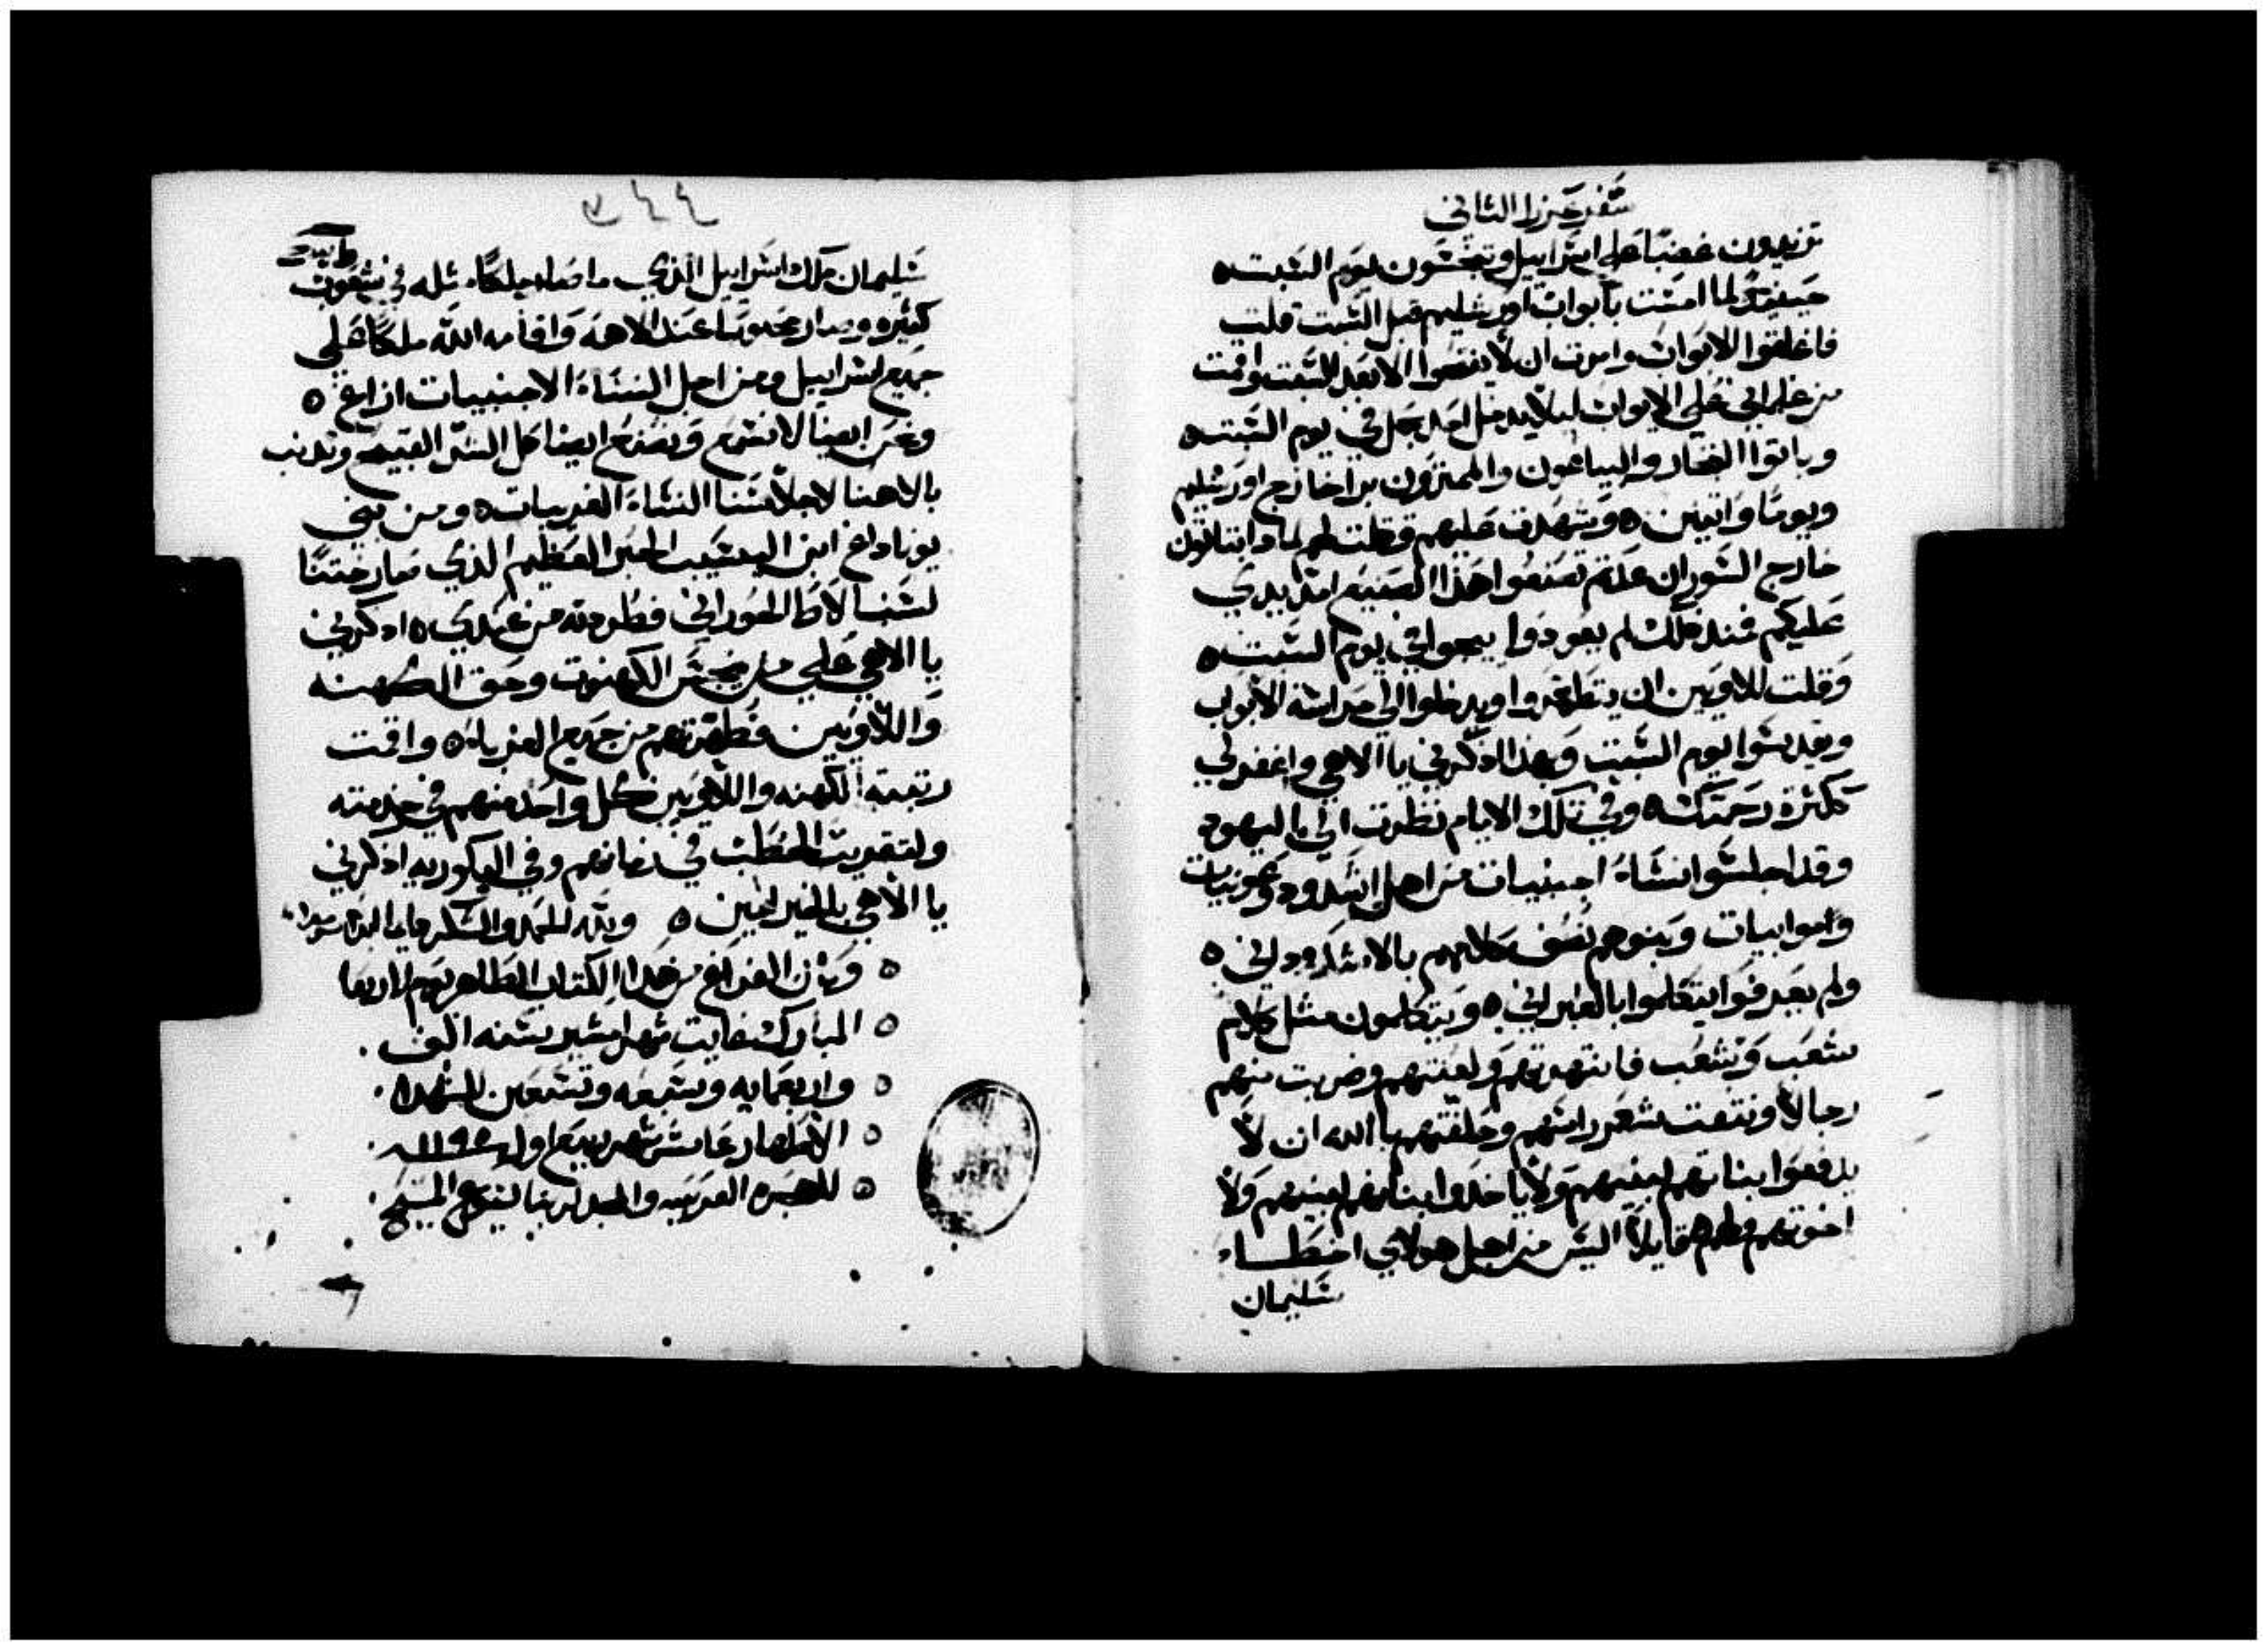 سفر عزرا الثاني
تزيدون غضبًا على اسراييل وتنجسون يوم السبت ه
حينيدٍ لما امست بابواب اورشليم قبل السبت قلت
فاغلقوا الابواب وامرت ان لا يفتحوا الا بعد السبت واقمت
من غلماني على الابواب ليلا يدخل احد بحمل في يوم السبت ه
وباتوا التجار والبياعون والممترون برا خارج اورشليم
ويومًا واتنين ه وشهدت عليهم وقلت لهم لمادا تباتون
خارج السور ان عدتم تصنعوا هذا الصنيع امد يدي
عليكم فمند ذلك لم يعودوا يجوا في يوم السبت ه
وقلت للاويين ان يتطهروا ويدخلوا الى حراسة الابواب
ويقدسوا يوم السبت وبهذا اذكرني يا الاهي واغفر لي
ككثرة رحمتك ه وفي تلك الايام نظرت الى اليهود
وقد اجلسوا نساءَ اجنبيات من اهل اشدود وعمونيات
وموابيات وبنوهم نصف كلامهم بالاشدودي ه
ولم يعرفوا يتكلموا بالعبراني ه ويتكلمون مثل كلام
شعب وشعب فانتهرتهم ولعنتهم وضربت منهم
رجالاً ونتفت شعر راسهم وحلفتهم بالله ان لا
يدفعوا بناتهم لبنيهم ولا ياخدوا بناتهم لبنيهم ولا
اخوتهم وقلت لهم قايلاً اليس من اجل هولاي اخطاء
سليمان
٣٤٤
سليمان ملك اسراييل الذي ما صار ملكًا مثله في شعوب
كتيره وصار محبوبًا عند الاهه واقامه الله ملكًا على
جميع اسراييل ومن اجل النساء الاجنبيات ازاغ ه
ونحن ايضا لا نسمع ونصنع ايضا كل الشر القبيح ونذنب
بالاهنا لاجلاسنا النساء الغريبات ه ومن بني
يوياداع ابن اليسيب الحبر العظيم الذي صار ختنًا
لسنبالاط الحوراني فطردته من عندي ه اذكرني
يا الاهي على من ينجس الكهنوت وحق الكهنه
واللاويين وطهرتهم من جميع الغربا ه واقمت
رتبة الكهنه واللاويين كل واحد منهم في خدمته
ولتقريب الحطب في زمانهم وفي البكوريه اذكرني
يا الاهي بالخير امين ه ولله الحمد والشكر دايما ابدا سرمدا
ه وكان الفراغ من هذا الكتاب الطاهر يوم الاربعا
ه المبارك غايت شهر امشير سنه الف
ه واربعمايه وسبعه وتسعين للشهدا
ه الاطهار عاشر شهر ربيع اول ١١٩٥
ه للهجره العربيه والمجد لربنا يسوع المسيح